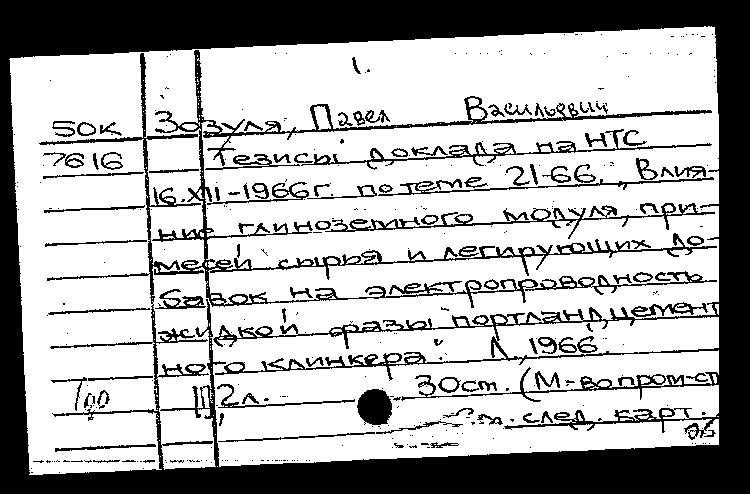 1.
50К Зозуля, Павел Васильевич
7616 Тезисы доклада на НТС
16.XII-1966г. по теме 21-66. „Влия-
ние глиноземного модуля, при-
месей сырья и легирующих до-
бавок на электропроводность
жидкой фазы портландцемент
ного клинкера". Л., 1966.
100 2л. 30см. (М-во пром-ст
см. след. карт.